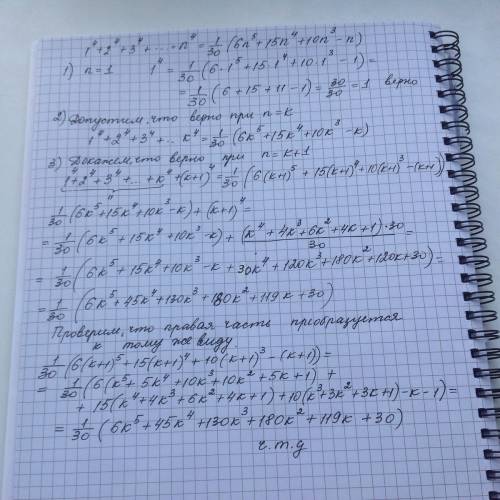 1⁴+2⁴+3⁴+...+n⁴=1/30(6n⁵+15n⁴+10n³-n)
1) n=1 1⁴=1/30(6·1⁵+15·1⁴+10·1³-1)=
=1/30(6+15+11-1)=30/30=1 верно
2) Допустим, что верно при n=k
1⁴+2⁴+3⁴+... k⁴=1/30(6k⁵+15k⁴+10k³-k)
3) Докажем, что верно при n=k+1
1⁴+2⁴+3⁴+...+k⁴+(k+1)⁴=1/30(6(k+1)⁵+15(k+1)⁴+10(k+1)³-(k+1))
1/30(6k⁵+15k⁴+10k³-k)+(k+1)⁴=
=1/30(6k⁵+15k⁴+10k³-k)+(k⁴+4k³+6k²+4k+1)·30/30=
=1/30(6k⁵+15k⁴+10k³-k+30k⁴+120k³+180k²+120k+30)=
=1/30(6k⁵+45k⁴+130k³+180k²+119k+30)
Проверим, что правая часть преобразуется
к тому же виду
1/30(6(k+1)⁵+15(k+1)⁴+10(k+1)³-(k+1))=
=1/30(6(k⁵+5k⁴+10k³+10k²+5k+1)+
+15(k⁴+4k³+6k²+4k+1)+10(k³+3k²+3k+1)-k-1)=
=1/30(6k⁵+45k⁴+130k³+180k²+119k+30)
ч.т.д